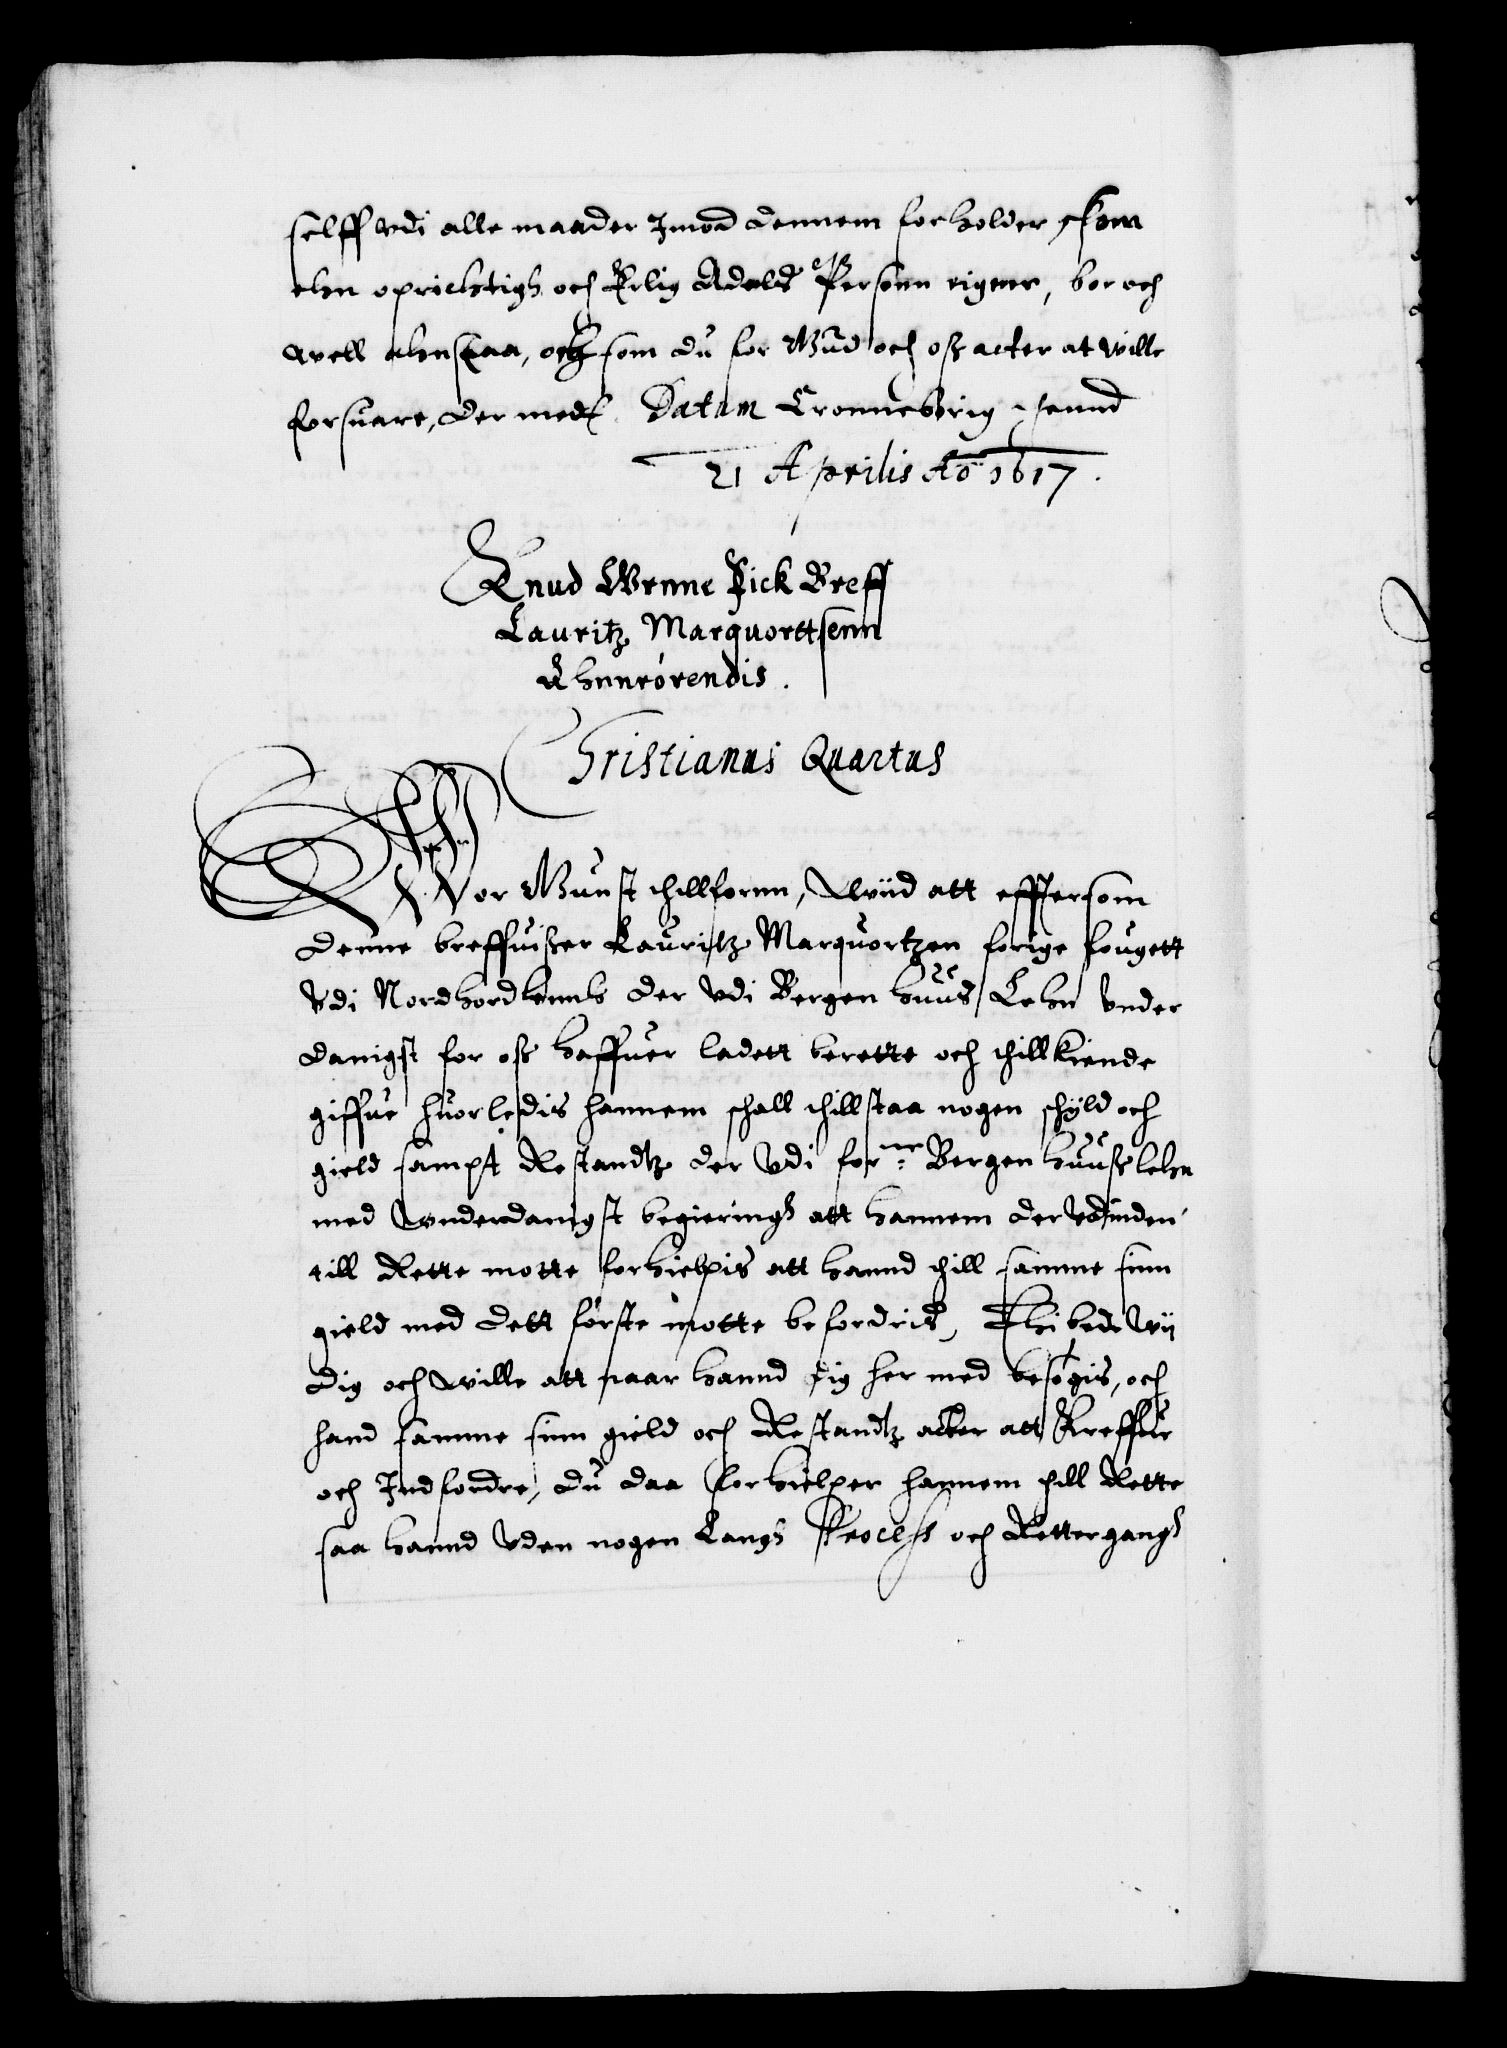 selff vdi alle maader Imod dennem forholder, som
ehn oprichtigh och Erlig Adels Person eigner, bør och
well ehnstaa, och som du for Gud och oss acter at wille
forsuare, der med. Datum Cronneborig
21 Aprilis Ao 1617.
Knud Wrnne Fick Breff
Lauritz Marquorttsenn
Ehnnrörendis.
Christianus Quartus
Wor Gunst thillfornn, Wiid att efftersom
denne breffuiszer Lauritz Marquortzen forige fougett
Vdi Nordhordlennb der vdi Bergenhuus Lehn vnder
danigst for oss haffuer ladett berette och thillkiende
giffue huorledis hannem schall thillstaa nogen schyld och
gield sampt Restandtz der vdi forne: Bergenhuuss lehn
med Wnderdanigst begieringh att hannem der vdinden
till Rette motte forhielpis att hannd thill samme sinn
gield med dett første motte befordris, Thi bede wij
dig och wille att naar hannd dig her med besøgis, och
hand samme sinn gield och Restandtz acter att Kreffue
och Indfordre, du daa forhielper hannem thill Rette
saa hannd vden nogen Langh Process och Rettergangh